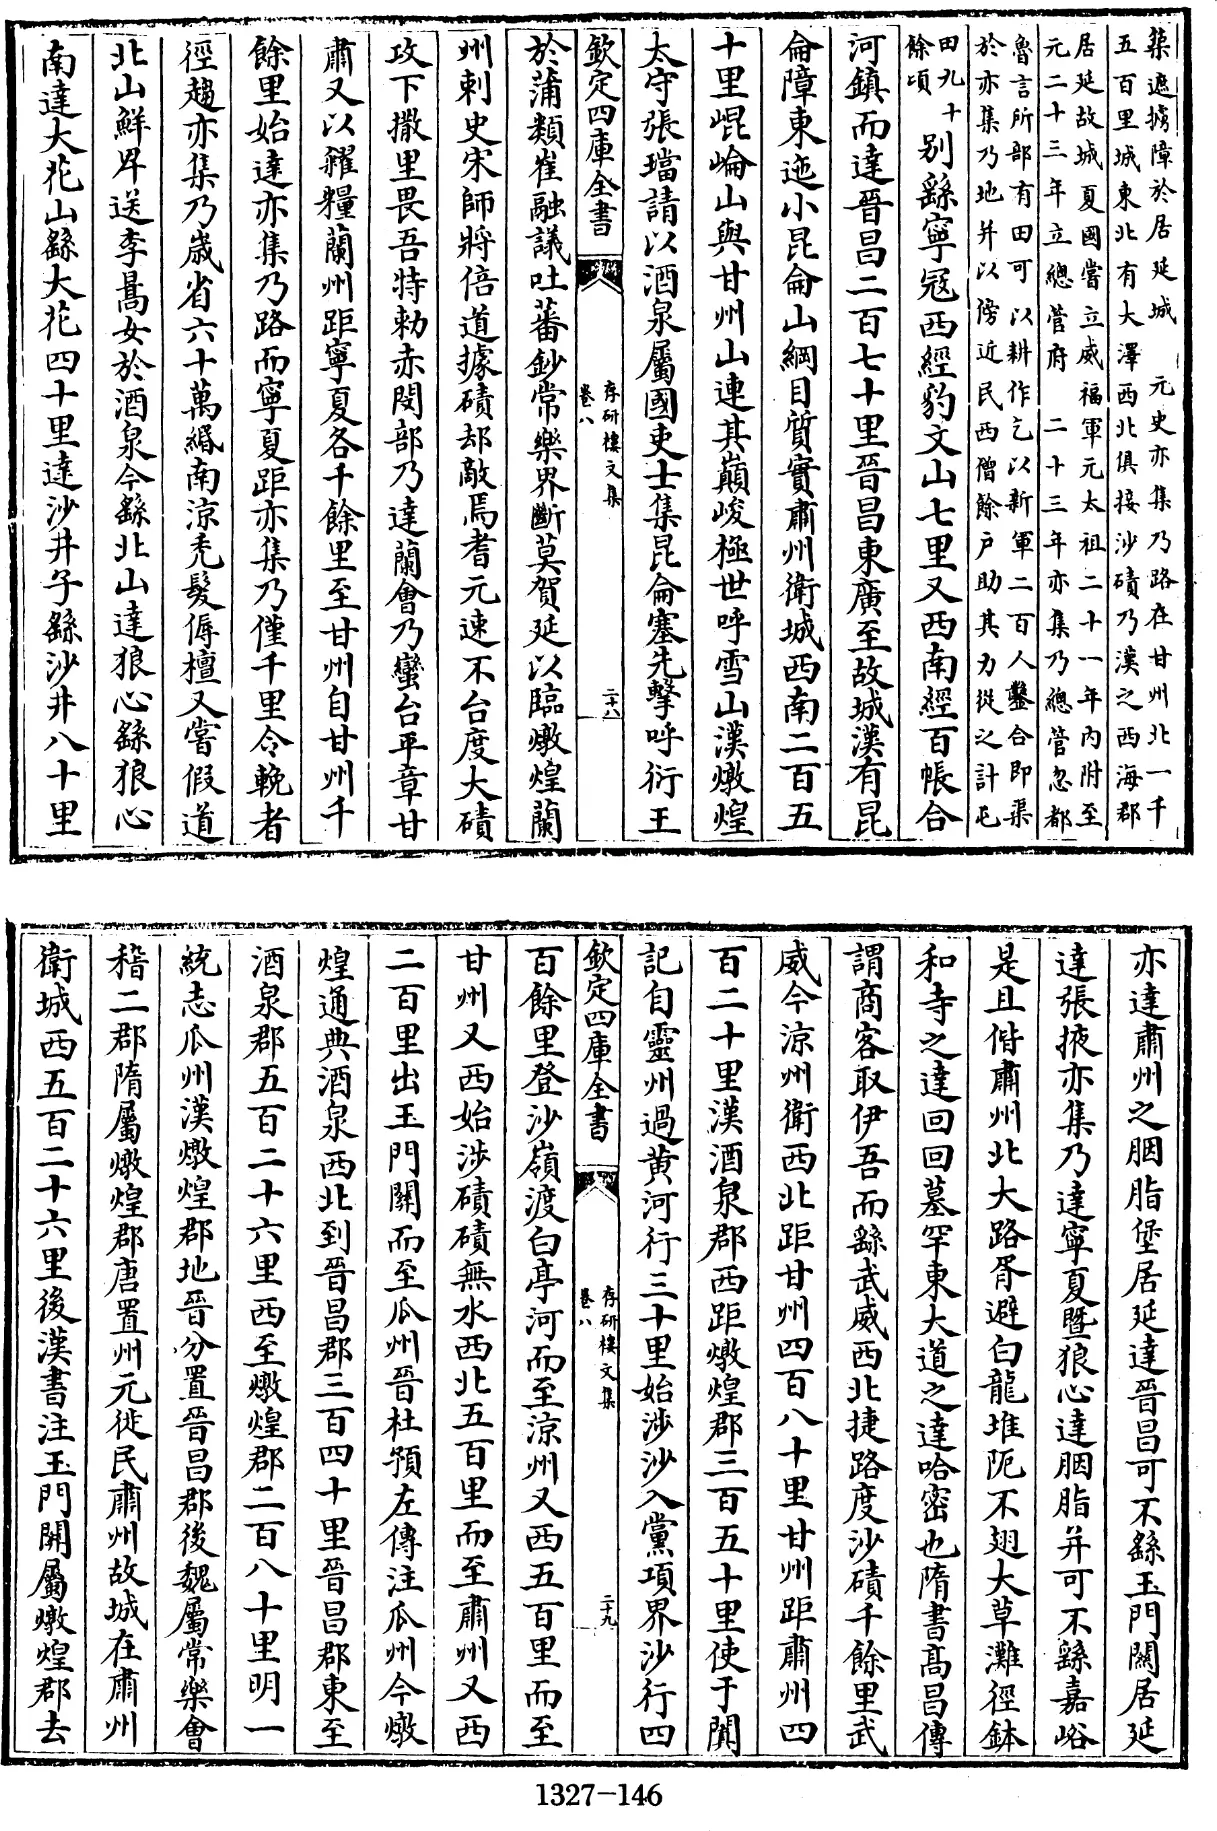 築遮擄障於居延城　元史亦集乃路在甘州北一千
五百里城東北有大澤西北俱接沙磧乃漢之西海郡
居延故城夏國嘗立威福軍元太祖二十一年內附至
元二十三年立總管府　二十三年亦集乃總管忽都
魯言所部有田可以耕作乞以新軍二百人鑿合即渠
於亦集乃地并以傍近民西僧餘户助其力從之計屯
田九十
餘頃
别繇寧冦西經豹文山七里又西南經百帳合
河鎮而達晉昌二百七十里晉昌東廣至故城漢有昆
侖障東迤小昆侖山綱目質實肅州衛城西南二百五
十里崑崙山與甘州山連其巔峻極世呼雪山漢燉煌
太守張璫請以酒泉屬國吏士集昆侖塞先擊呼衍王
欽定四庫全書
存研樓文集
卷八
二十八
於蒲類崔融議吐蕃鈔常樂界斷莫賀延以臨燉煌蘭
州刺史宋師將倍道據磧却敵焉耆元速不台度大磧
攻下撒里畏吾特勅赤閔部乃達蘭會乃蠻台平章甘
肅又以糴糧蘭州距寧夏各千餘里至甘州自甘州千
餘里始達亦集乃路而寧夏距亦集乃僅千里令輓者
徑趨亦集乃歲省六十萬緡南涼秃髮傉檀又嘗假道
北山鮮卑送李暠女於酒泉今繇北山達狼心繇狼心
南達大花山繇大花四十里達沙井子繇沙井八十里
亦達肅州之胭脂堡居延達晉昌可不繇玉門關居延
達張掖亦集乃達寧夏暨狼心達胭脂并可不繇嘉峪
是且偕肅州北大路胥避白龍堆阨不翅大草灘徑鉢
和寺之達回回墓罕東大道之達哈密也隋書高昌傳
謂商客取伊吾而繇武威西北捷路度沙磧千餘里武
威今涼州衛西北距甘州四百八十里甘州距肅州四
百二十里漢酒泉郡西距燉煌郡三百五十里使于闐
記自靈州過黄河行三十里始渉沙入黨項界沙行四
欽定四庫全書
存研樓文集
卷八
二十九
百餘里登沙嶺渡白亭河而至涼州又西五百里而至
甘州又西始渉磧磧無水西北五百里而至肅州又西
二百里出玉門關而至瓜州晉杜預左傳注瓜州今燉
煌通典酒泉西北到晉昌郡三百四十里晉昌郡東至
酒泉郡五百二十六里西至燉煌郡二百八十里明一
統志瓜州漢燉煌郡地晉分置晉昌郡後魏屬常樂會
稽二郡隋屬燉煌郡唐置州元徙民肅州故城在肅州
衛城西五百二十六里後漢書注玉門關屬燉煌郡去
1327-146